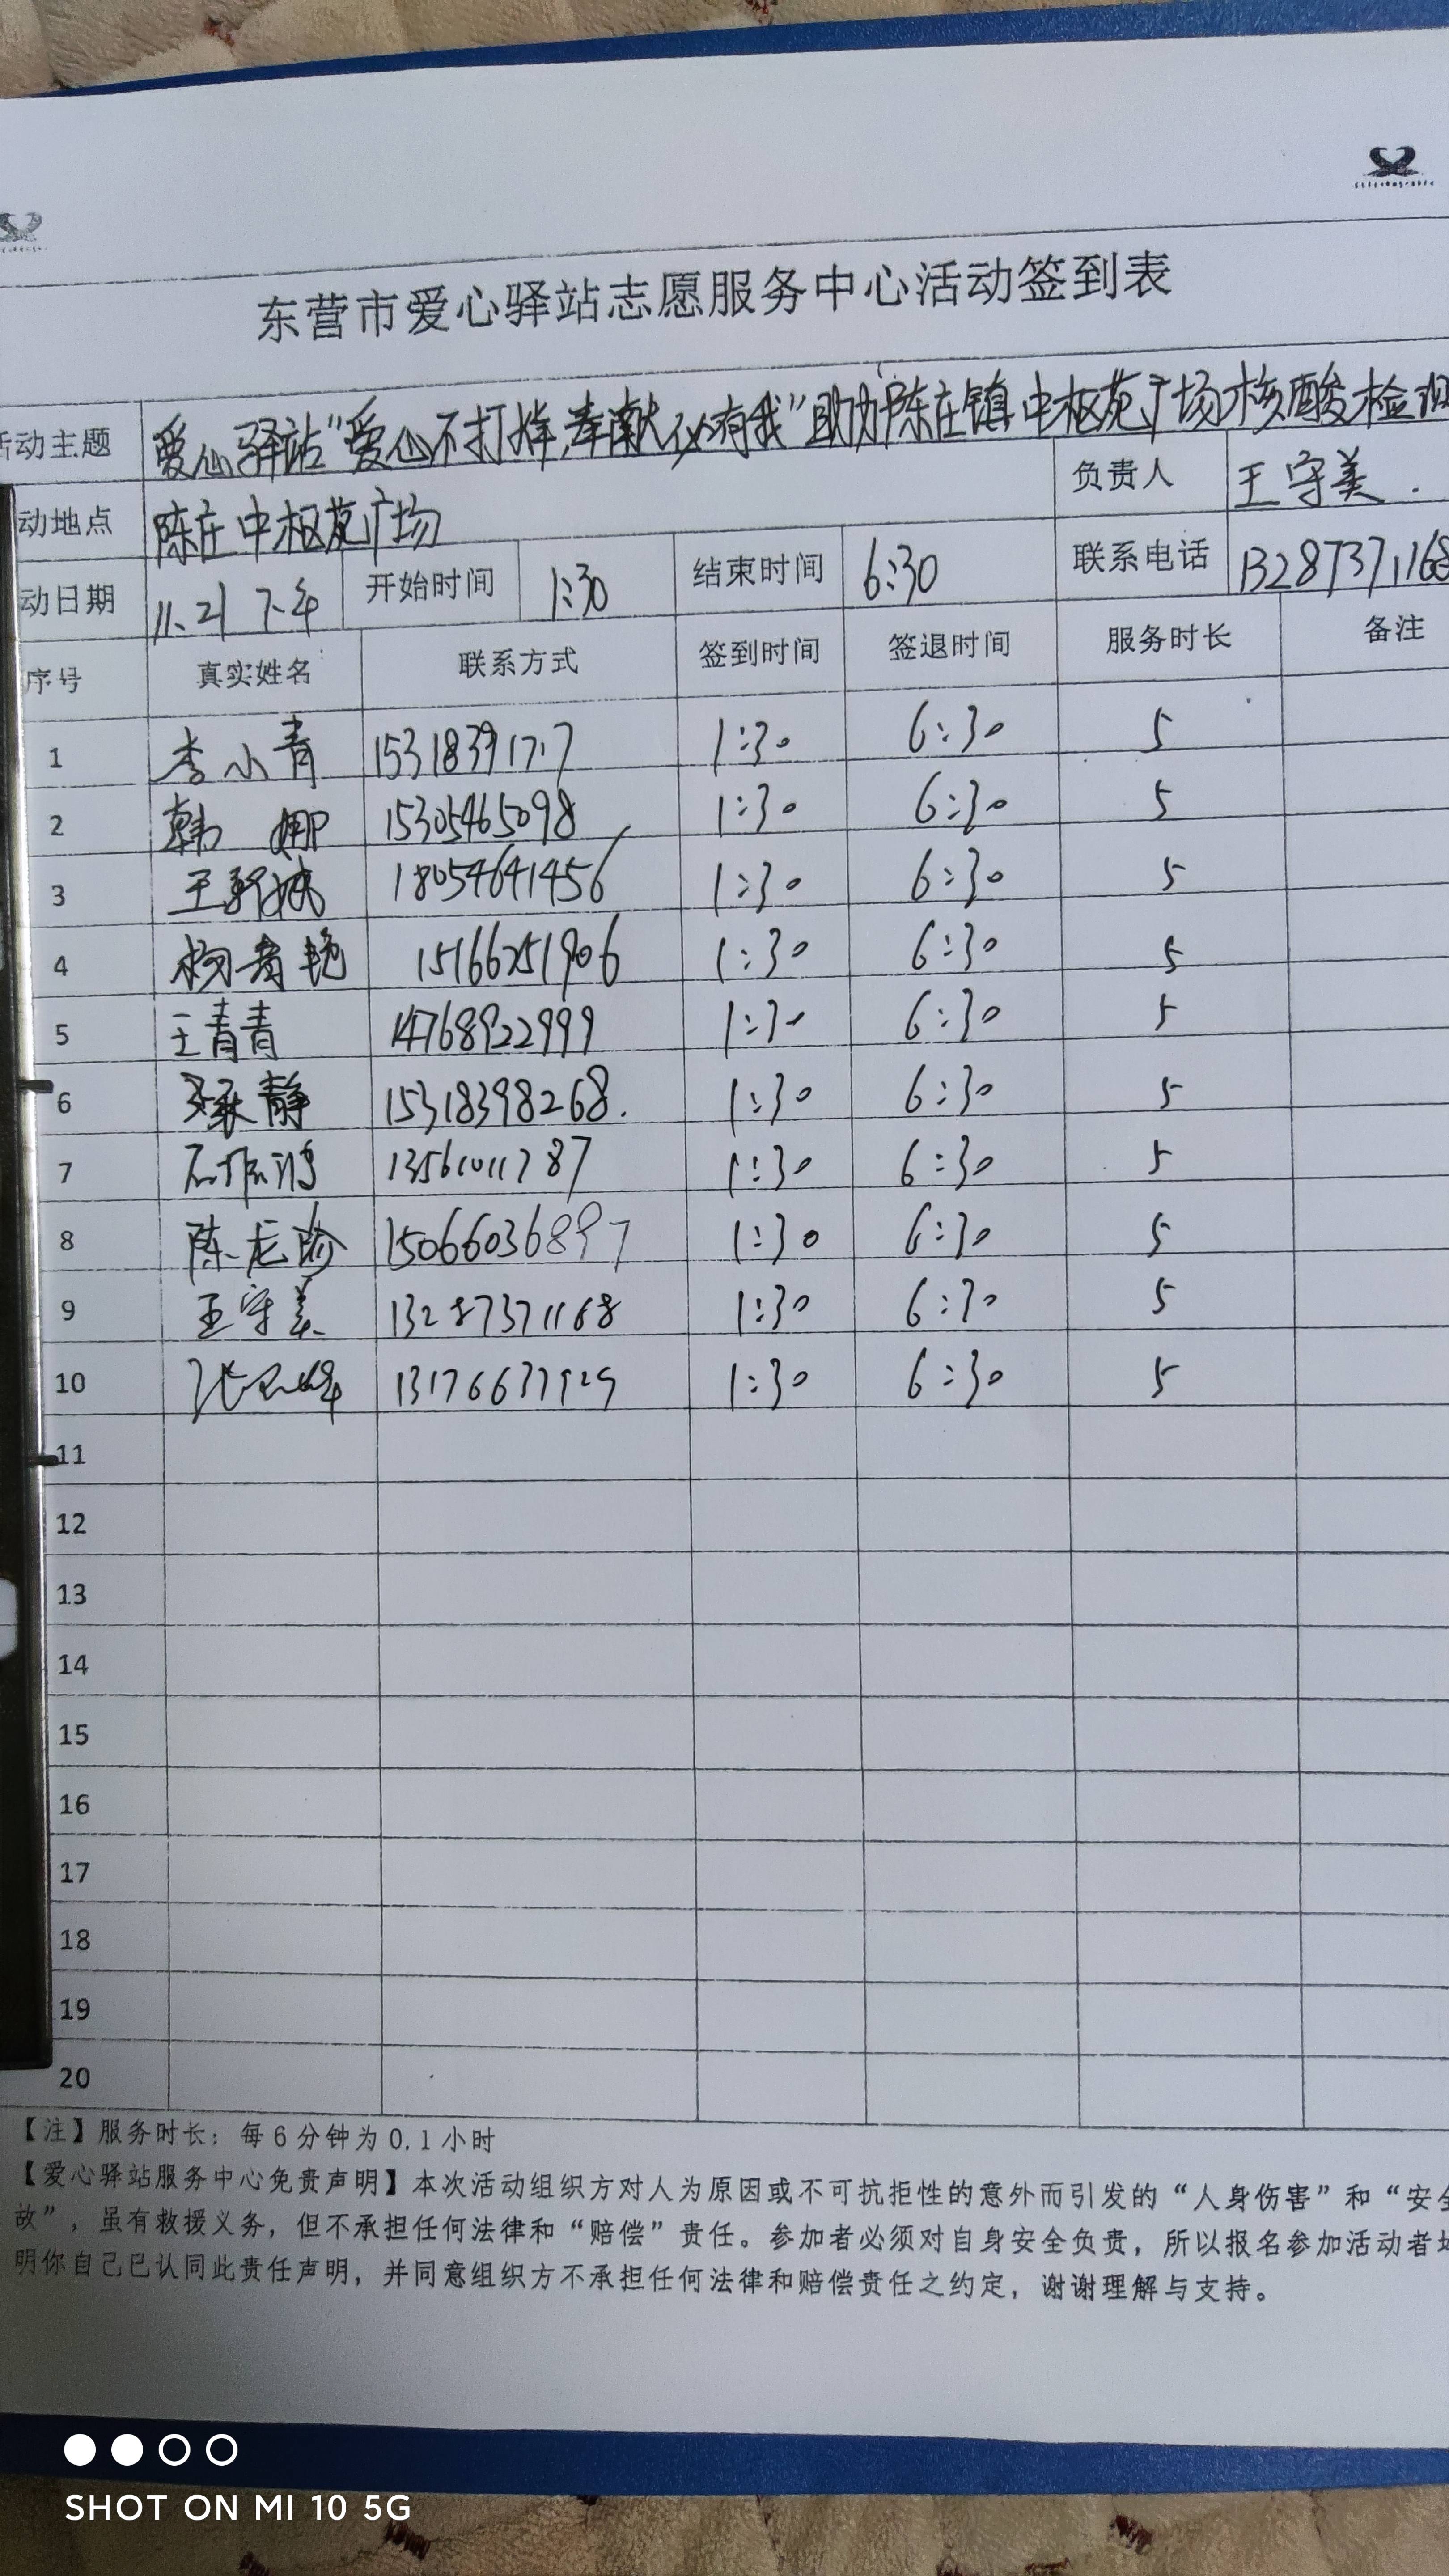 东营市爱心驿站志愿服务中心活动签到表
活动主题 爱心驿站“爱心不打烊,奉献必有我”助力陈庄镇中枢苑广场核酸检测
动地点 陈庄中枢苑广场 负责人 王守美.
动日期 11.21 下午 开始时间 1:30 结束时间 6:30 联系电话 13287371168
序号 真实姓名 联系方式 签到时间 签退时间 服务时长 备注
1 李小青 15318391717 1:30 6:30 5
2 韩娜 15305465098 1:30 6:30 5
3 18054641456 1:30 6:30 5
4 杨青艳 15166251906 1:30 6:30 5
5 王青青 14768922999 1:30 6:30 5
6 静 15318398268. 1:30 6:30 5
7 13561011787 1:30 6:30 5
8 陈龙 15066036897 1:30 6:30 5
9 王守美 13287371168 1:30 6:30 5
10 张 1:30 6:30 5
11
12
13
14
15
16
17
18
19
20
【注】服务时长：每6分钟为0.1小时
【爱心驿站服务中心免责声明】本次活动组织方对人为原因或不可抗拒性的意外而引发的“人身伤害”和“安全
故”，虽有救援义务，但不承担任何法律和“赔偿”责任。参加者必须对自身安全负责，所以报名参加活动者
明你自己已认同此责任声明，并同意组织方不承担任何法律和赔偿责任之约定，谢谢理解与支持。
SHOT ON MI 10 5G